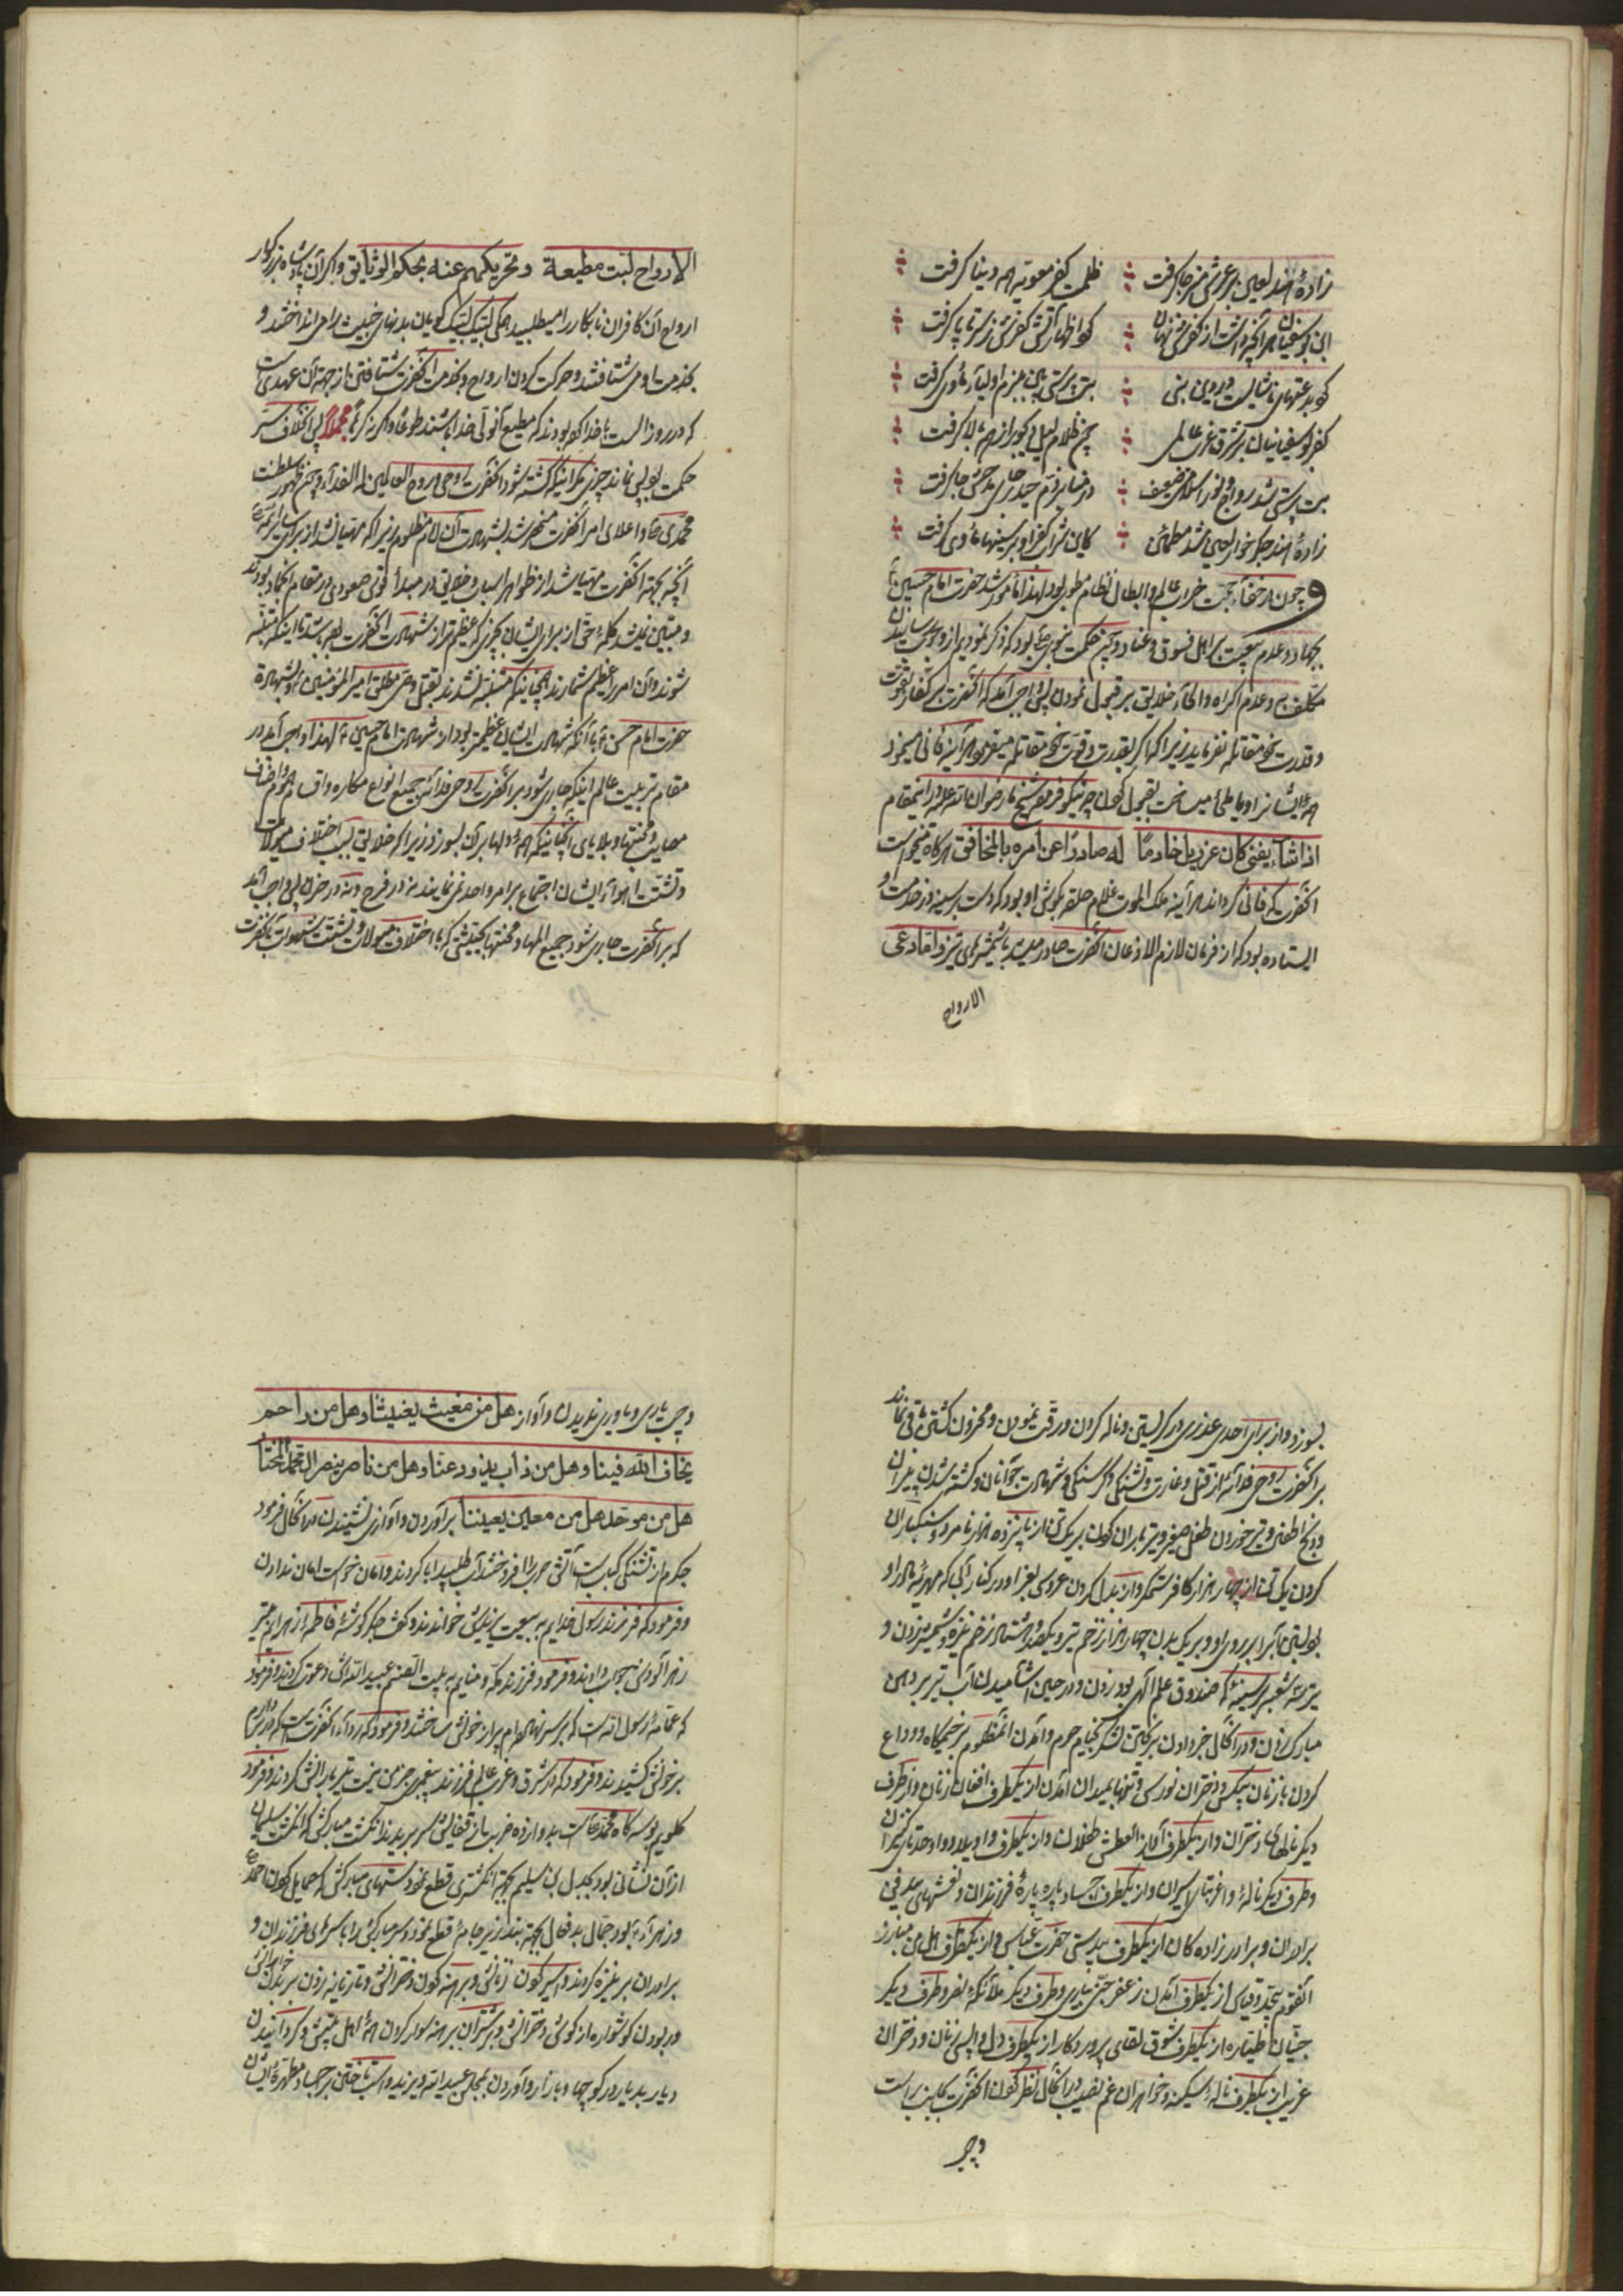 زادهٔ هند لعین بر عرش منبر جا گرفت ظلمت کفر معویه همه دنیا گرفت
ابن بوسفیان هر آنچه داشت از کفر نهان کو اظهار آتش کفرش ز سر تا پا گرفت
کو بدعتهای ناشایست در دین نبی بت پرستی بین بزم اولیا مأوی گرفت
کفر بوسفیانیان بر شرق و غرب عالمی چون ظلام لیل دیجور از همه بالا گرفت
بت پرستی شد رواج و نور اسلامی ضعیف در منابر ذم حیدر جای حق جا گرفت
زادهٔ هند جگرخوار لعین شد مطمئن کاین شرار کفر او بر سینها مأوی گرفت
و چون در خفاء حجت خراب عالم و ابطال نظام مطوی بود لهذا مأمور شد حضرت امام حسین
بجهاد و عدم بیعت بر اهل فسوق و عناد و چون حکمت بود که ذکر نمودیم از وجوب رسانیدن
مکلف به و عدم اکراه و الجاء خلایق بر قبول نمودن پس واجب آمد که آنحضرت بر کفار بقوت
و قدرت خود مقاتله نفرماید زیرا که اگر بقدرت و قوت خود مقاتله میفرمود هر آینه فانی مینمود
همه ایشانرا و مینمود چنانکه فرموده شیخ رضوان الله علیه در این مقام
اذا شاء یفنی کان عزریل خادما له صادرا عن امره بالمخافة هرگاه میخواست
آنحضرت که فانی گرداند هر آینه ملک الموت غلام حلقه بگوش او بود که دست بر سینه در خدمت او
ایستاده بود که از فرمان لازم الاذعان آنحضرت صادر میشد با شمشیرهای تیز و لقد دعی
الارواح
الارواح لبت مطیعة و تحریکهم عنه بحکم الوثاقة و اگر آن پادشاه بزرگوار
ارواح آن کافران نابکار را میطلبید همگی لبیک لبیک گویان بدنهای خبیث را می انداختند و
بخدمت او می شتافتند و حرکت کردن ارواح و بخدمت آنحضرت شتافتن از جهة آن عهدی است
که در روز الست با خدا کرده بودند که مطیع آنولی خدا باشند طوعا و اگر نه کرها مجملا پس انکشاف ستر
حکمت نماند چیزی مگر اینکه کشته شود آنحضرت روحی و روح العالمین له الفداء و چون ظهور سلطنت
محمدی ص و اعلای امر آنحضرت منحصر شد بشهادت آن امام مظلوم زیرا که مهیا نشد از برای سایر ائمه
آنچه بجهة آنحضرت مهیا شد از ظواهر اسباب و خلایق در مبدأ قوس صعودی در مقام انجماد بودند
و متبین نمیشد کلمهٔ حق از برای ایشان بچیزی که عظیمتر از شهادت آنحضرت بوده باشد تا اینکه متنبه
شوند و آن امر را عظیم شمارند همچنانکه متنبه نشدند بقتل وصی مطلق امیر المؤمنین ع و بشهادة
حضرت امام حسن ع با آنکه شهادت ایشان عظیمتر بود از شهادت امام حسین ع لهذا واجب آمد در
مقام تربیت عالم اینکه جاری شود بر آنحضرت روحی فداه جمیع انواع مکاره و اقسام هموم از
مصایب و محنتها و بلایای آنچنانی که همهٔ دلها بر آن بسوزد زیرا که خلایق بسبب اختلاف میولات
و تشتت اهواء ایشان اجتماع بر امر واحد نمی نمایند نه در فرح و نه در حزن پس واجب آمد
که بر آنحضرت جاری شود جمیع المها و محنتها بحیثیتی که با اختلاف میولات و تشتت شهوات بآنحضرت
بسوزد و از برای احدی عذری در گریستن و ناله کردن و رقت نمودن و محزون گشتن باقی نماند
بر آنحضرت روحی فداه از قتل و غارت و تشنگی و گرسنگی و شهادت جوانان و کشته شدن پیران
و ذبح اطفال و تیر خوردن طفل صغیر و تیر باران کردن بر یک تن از پانزده هزار نامرد و سنگباران
کردن یک تن از چهار هزار کافر ستمگر و از بدل کردن عروسی بعزا و در کنار آبی که مهریهٔ مادر او
بود بستن آب را بر روی او و بر یک بدن چهار هزار زخم تیر و یکصد و هشتاد زخم نیزه و شمشیر زدن و
تیر سه شعبه بر سینهٔ که صندوق علم الهی بود زدن و در حین آشامیدن آب تیر بر دهن
مبارک زدن و در آنحال خبر دادن برگشتن لشکر بخیام حرم و آمدن آنمظلوم بر خیمگاه و وداع
کردن با زنان بیکس و دختران نورس و تنها بمیدان آمدن از یکطرف افغان زنان و از طرف
دیگر نالهای دختران و از یکطرف آواز العطش طفلان و از یکطرف واویلا و وا وحدتای
و طرف دیگر نالهٔ وا غربتای اسیران و از یکطرف اجساد پاره پارهٔ فرزندان و نعشهای
برادران و برادر زاده گان از یکطرف بیدستی حضرت عباس و از یکطرف هل من مبارز
آنقوم از یکطرف آمدن زعفر جنی بیاری و طرف دیگر ملائکهٔ نصر و طرف دیگر
جنیان طیاره از یکطرف شوق لقای پروردگار از یکطرف دل واپسی زنان و دختران
غریب از یکطرف نالهٔ سکینه و خواهران غم نصیب در آنحال نظر کردن آنحضرت بجانب راست
و چپ
و چپ یاری و یاوری ندیدن و آواز هل من مغیث یغیثنا و هل من راحم
یخاف الله فینا و هل من ذاب یذود عنا و هل من ناصر ینصر
هل من موحد هل من معین یعیننا بر آوردن و آوازی نشنیدن در آنحال فرمود
جگرم از تشنگی کباب است آتش حرب را افروختند آب طلبید ابا کردند و امان خواست امان ندادن
و فرمود که فرزند رسول خدایم به بیعت یزیدش خواندند و گفت جگر گوشهٔ فاطمه زهرایم تیر
زهر آلودش جواب دادند و فرمود فرزند مکه و منایم به پلیت العنم عبید الله اش دعوت کردند و فرمود
که عمامهٔ رسول الله است که بر سر نهاده ام و فرمود که رداء آنحضرت است که
بر خواش کشیدند و فرمود که در شرق و غرب عالم فرزند پیغمبری جز من نیست تیر بارانش کردند و فرمود
گلویم بوسه گاه محمد ص است بدوازده ضربت از قفایش سر بریدند انگشت مبارکش که انگشت سلیمان
از آن نشانی بود بجدل بن سلیم بجهة انگشتری قطع نمود دستهای مبارکش که حمایل گردن احمد ص
و زهراء بود جمال بدفعال بجهة بند زیر جامه قطع نمود و سر مبارکش را با سرهای فرزندان و
برادران بر نیزه کردند و اسیر کردن زنانش و برهنه کردن دخترانش و تازیانه زدن بر بدن
و ربودن گوشواره از گوش دخترانش و بر شتران برهنه سوار کردن همهٔ اهل بیتش و گردانیدن
دیار بدیار و در کوچها و بازار و آوردن بمجلس عبید الله و یزید و اسب تاختن بر اجساد مطهرهٔ ایشان